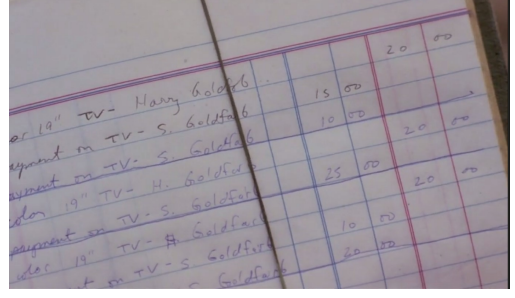 or 19" TV - Harry Goldfarb 20 00
ayment on TV - S. Goldfarb 15 00
ayment on TV - S. Goldfarb 10 00
olor 19" TV - H. Goldfarb 20 00
payment on TV - S. Goldfarb 25 00
olor 19" TV - H. Goldfarb 20 00
ment on TV - S Goldfarb 10 00
S Goldfarb 20 00